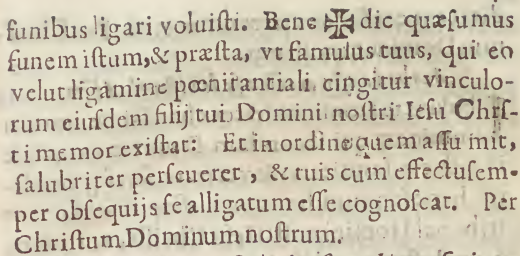 funibus ligari voluiſti. Bene ✠ dic quæſumus
funem iſtum,& præſta, vt famulus tuus, qui eo
velut ligamine pœnitantiali cingitur vinculo-
rum eiuſdem filij tui Domini noſtri Ieſu Chriſ-
ti memor exiſtat: Et in ordine quem aſſu mit,
ſalubriter perſeueret , & tuis cum effectu ſem-
per obſequijs ſe alligatum eſſe cognoſcat. Per
Chriſtum Dominum noſtrum.